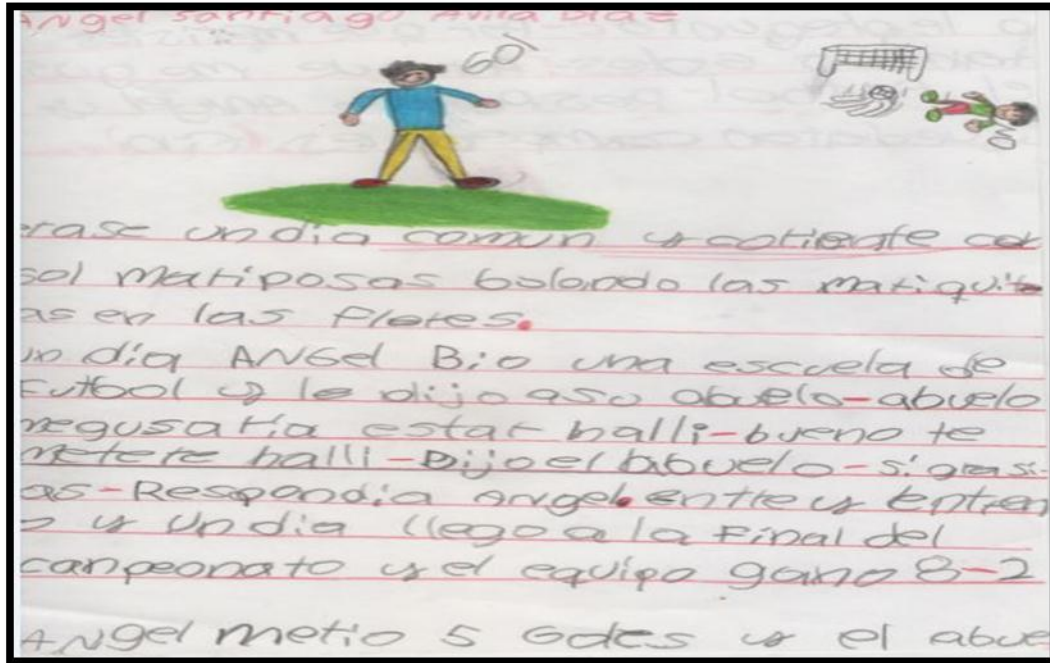 Angel santiago Avila Diaz
GOl
erase un dia comun y cotirente con
sol mariposas bolando las mariquit
as en las flores.
un dia ANGel Bio una escuela de
Futbol y le dijo asu abuelo-abuelo
megusaria estar halli-bueno te
metere halli-Dijo el abuelo-si grasi
as-Respondia Angel. entre y Entren
o y un dia llego a la Final del
canpeonato y el equipo gaino 8-2
ANgel metio 5 Goles y el abue